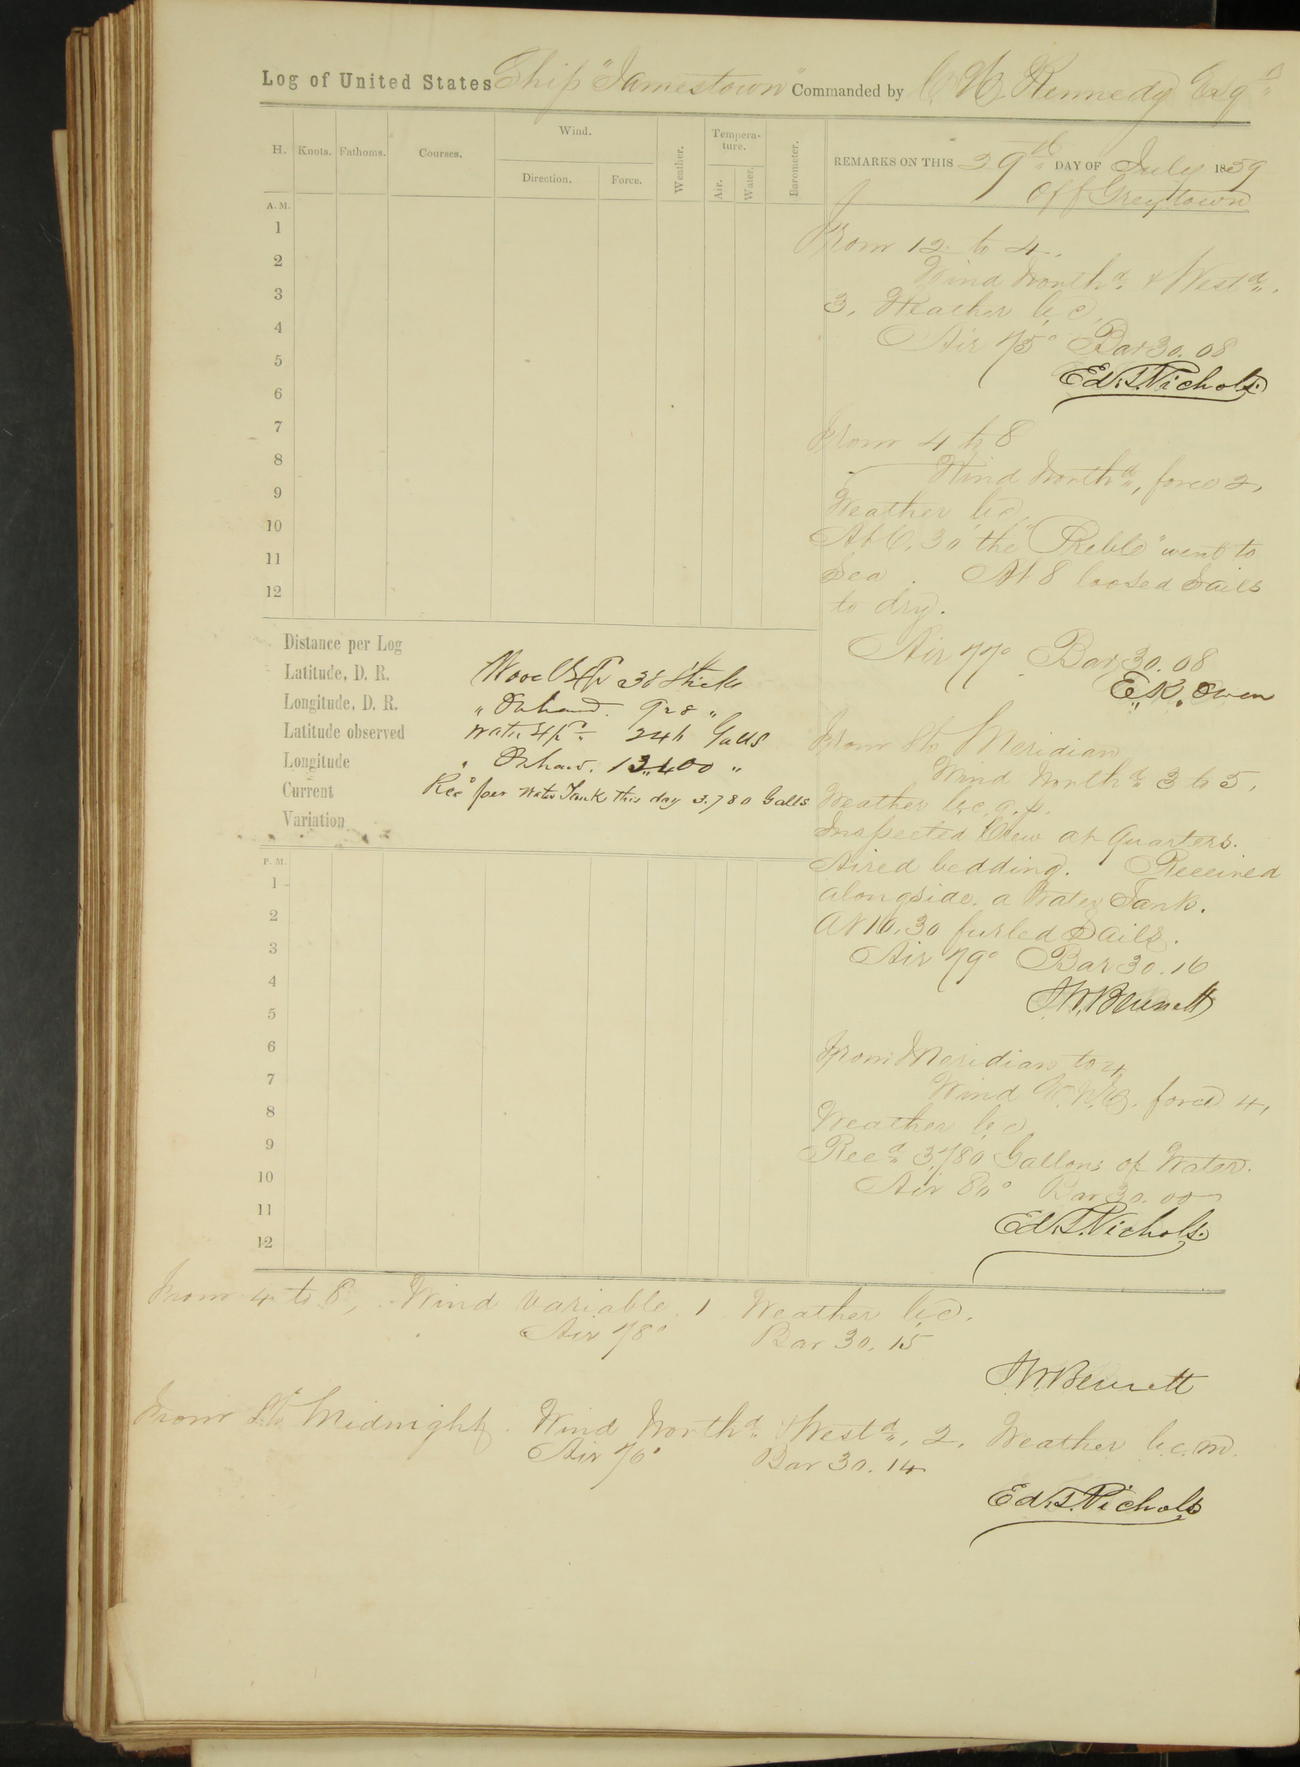 Log of United States Ship "Jamestown" Commanded by C. H. Kennedy Esqr
H. Knots. Fathoms. Courses. Wind. Direction. Force. Weather. Tempera-ture. Air. Water. Barometer.
REMARKS ON THIS 29th DAY OF July 1859
Off Greytown
A. M.
1
2
3
4
5
6
7
8
9
10
11
12
From 12 to 4.
Wind Northd & Westd.
3. Weather b.c.
Air 75° Bar 30.08
Ed. T. Nichols
From 4 to 8
Wind Northd, force 2,
Weather b.c.
At 6.30 the "Preble" went to
Sea. At 8 loosed Sails
to dry.
Air 77° Bar 30.08
E. K. Owen
From 8 to Meridian
Wind Northd 3 to 5.
Weather b.c.q.p.
Inspected Crew at Quarters.
Aired bedding. Received
alongside a Water Tank.
At 10.30 furled Sails.
Air 79° Bar 30.16
J. W. Bennett
From Meridian to 4
Wind force 4,
Weather b.c.
Recd 3,780 Gallons of Water.
Air 80° Bar 30.00
Ed. T. Nichols
Distance per Log
Latitude, D. R.
Longitude, D. R.
Latitude observed
Longitude
Current
Variation
Wood Exp 38 Sticks
" On hand. 928 "
Water Exp. Galls
" On hand. 13,400 "
Recd per Water Tank this day 3.780 Galls
P. M.
1
2
3
4
5
6
7
8
9
10
11
12
From 4 to 8, Wind Variable. 1 Weather b.c.
Air 78° Bar 30.15
J. W. Bennett
From 8 to Midnight. Wind Northd & Westd, 2. Weather b.c.m.
Air 76° Bar 30.14
Ed. T. Nichols